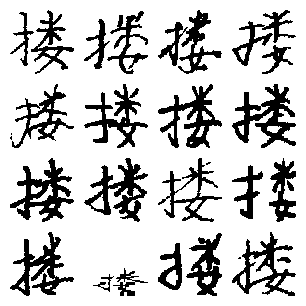 搂搂搂搂
搂搂搂搂
搂搂搂搂
搂搂搂搂